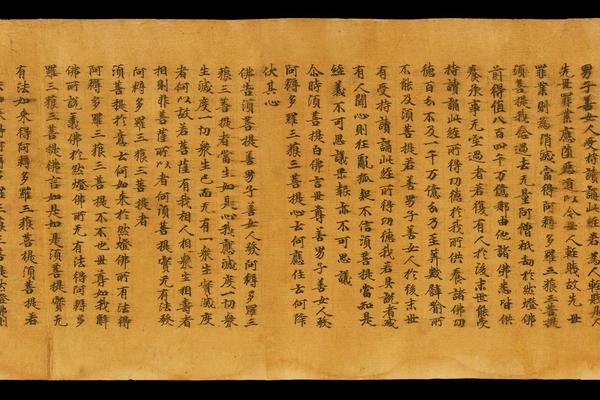 男子善女人受持讀誦此經若為人輕賤是人
先世罪業應墮惡道以今世人輕賤故先世
罪業則為消滅當得阿耨多羅三藐三菩提
須菩提我念過去无量阿僧祇劫於然燈佛
前得值八百四千万億那由他諸佛悉皆供
養承事无空過者若復有人於後末世能受
持讀誦此經所得功德於我所供養諸佛功
德百分不及一千万億分乃至筭數譬喻所
不能及須菩提若善男子善女人於後末世
有受持讀誦此經所得功德我若具說者或
有人聞心則狂亂狐疑不信須菩提當知是
經義不可思議果報亦不可思議
尒時須菩提白佛言世尊善男子善女人發
阿耨多羅三藐三菩提心云何應住云何降
伏其心
佛告須菩提善男子善女人發阿耨多羅三
藐三菩提者當生如是心我應滅度一切眾
生滅度一切眾生已而无有一眾生實滅度
者何以故若菩薩有我相人相眾生相壽者
相則非菩薩所以者何須菩提實无有法發
阿耨多羅三藐三菩提者
須菩提於意云何如來於然燈佛所有法得
阿耨多羅三藐三菩提不不也世尊如我解
佛所說義佛於然燈佛所无有法得阿耨多
羅三藐三菩提佛言如是如是須菩提實无
有法如來得阿耨多羅三藐三菩提須菩提若